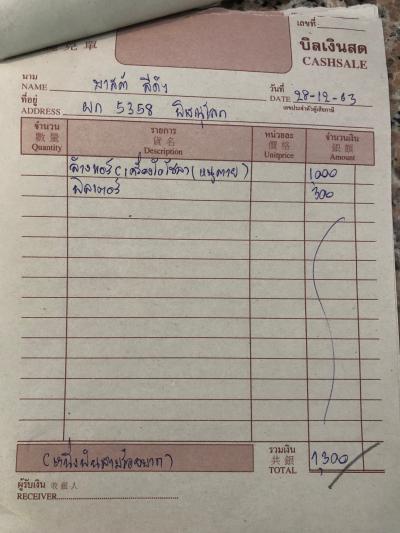 เลขที่
บิลเงินสด
CASHSALE
นาม
NAME มาสด้า สีดำ
วันที่
DATE 28-12-63
เลขประจำตัวผู้เสียภาษี
ที่อยู่
ADDRESS ผก 5358 พิษณุโลก
จำนวน รายการ หน่วยละ จำนวนเงิน
數量 貨名 價格 銀額
Quantity Description Unitprice Amount
ล้างแอร์ (หนูตาย) 1,000
ฟิลเตอร์ 300
(หนึ่งพันสามร้อยบาท)
รวมเงิน
共銀
TOTAL 1,300
ผู้รับเงิน 收銀人
RECEIVER